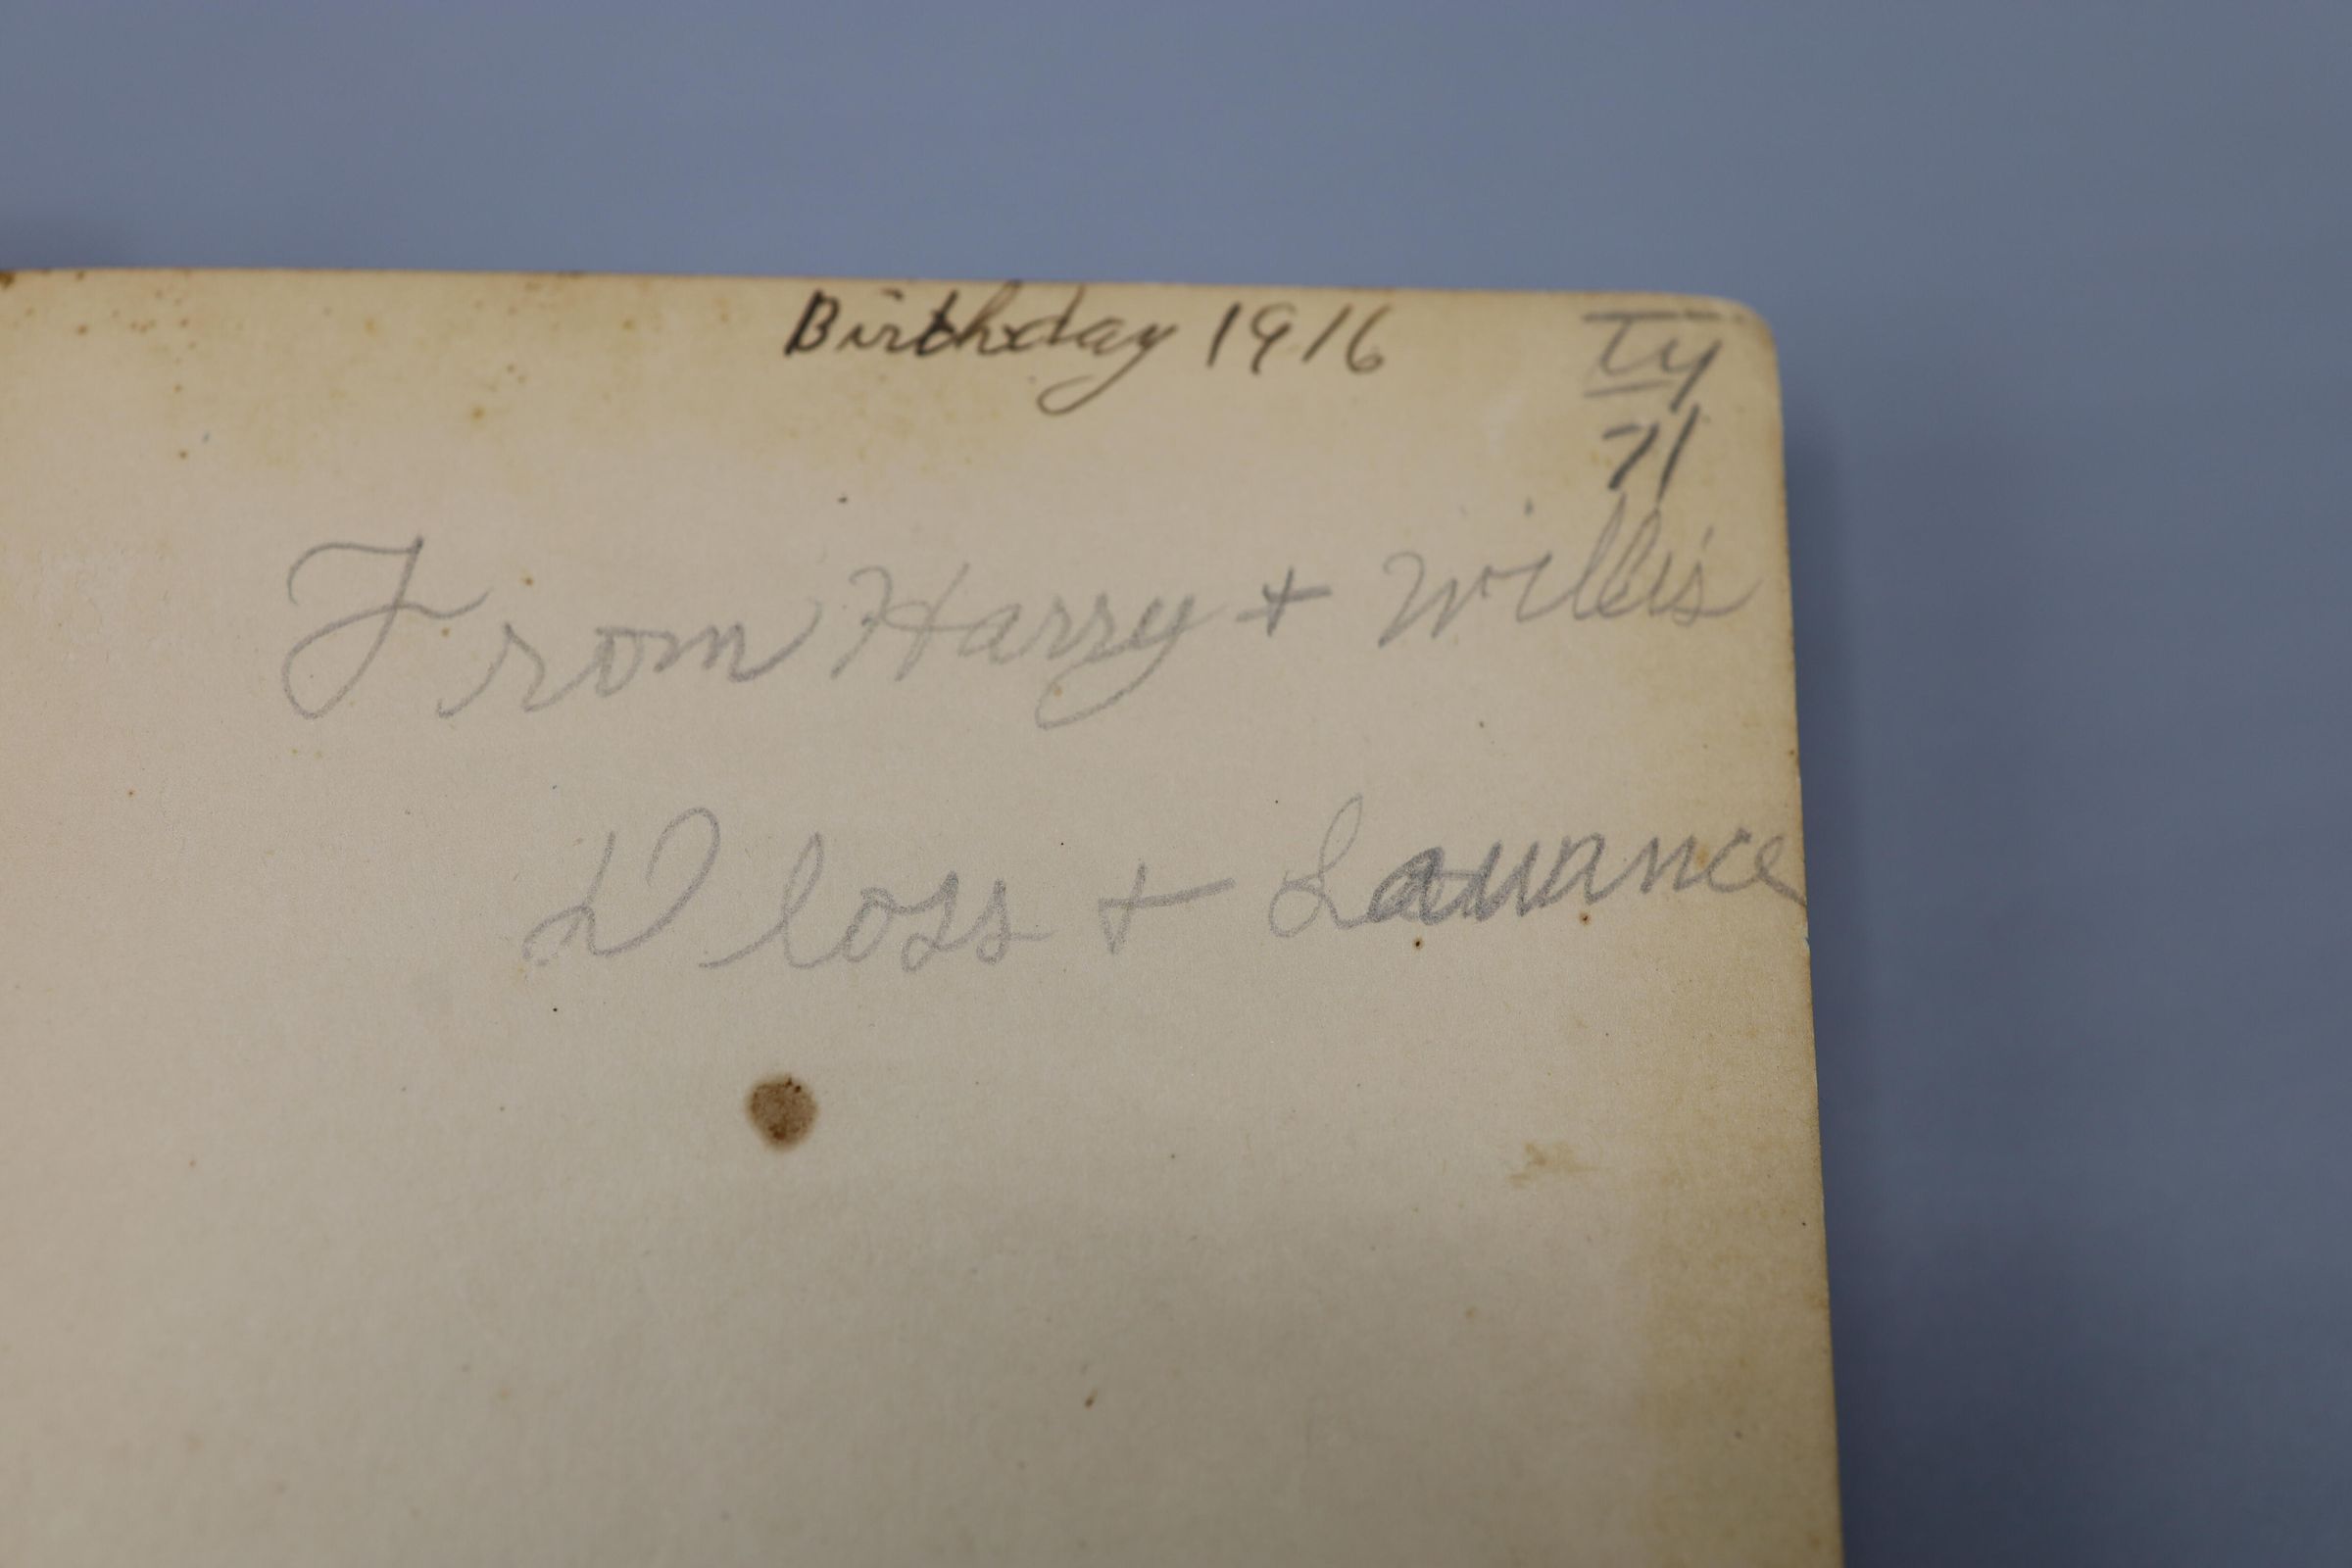 Birthday 1916
Ty
71
From Harry + Willis
D loss + Lauance